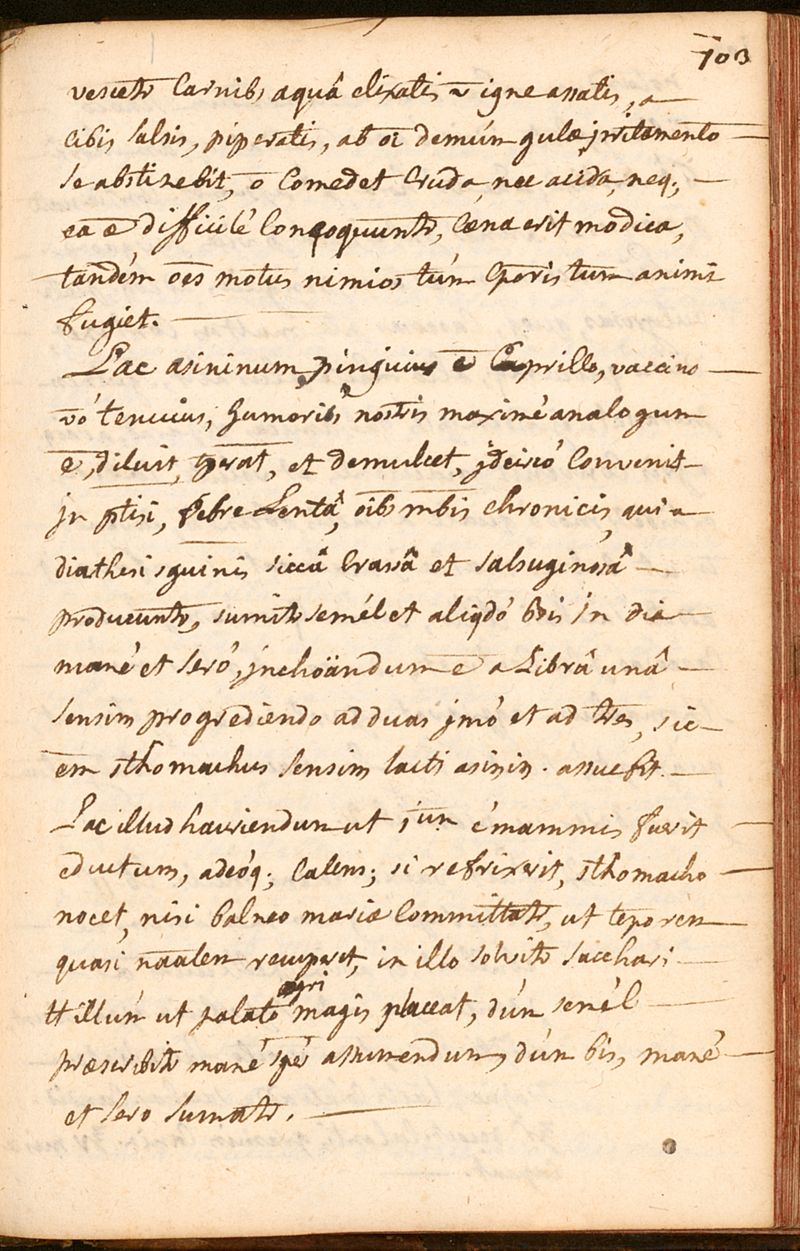 703
vescetr Carnibs aquâ elixatis v̄ igne assatis, a
cibis salsis, piperatis, ab oī demùm gulæ jrritamento
se abstinebit, ō Comedet Cruda nec acida, neq;
ea ē difficilé Concoquuntr, Cæna erit modica,
tandém oēs motus nimios túm Cporis tum animi
fugiet.
Lac asininum pinguius ē Caprillo, vaccino
vó tenuius, humoribs nostris maximé analogum
ē, diluit, tperat, et demulcet, jdcircó Convenit
jn ptisi, febre Lentâ, oibs mbis chronicis, qui a
diathesi sguinis siccâ Crassâ et salsuginosâ
producuntr, sumitr semél et aliqdó bis in die
mané et seró, jnchoändum ē a Librâ unâ
sensim progrediendo ad duas jmó et ad tres, sic
em sthomachus sensim lacti asinin. assuefit.
Lac illud hauriendum ut jum é mammis fuerit
eductum, adeóq; Calens; si refrixerit, sthomacho
nocet, nisi balneo mariæ Committatr, ut teporem
quasi nāalem recuperet, in illo solvitr sacchari
ttillúm ut palato ægri magis placeat, dúm semél
præscribitr mané spé assumendum, dúm bis, mané
et sero sumatr.